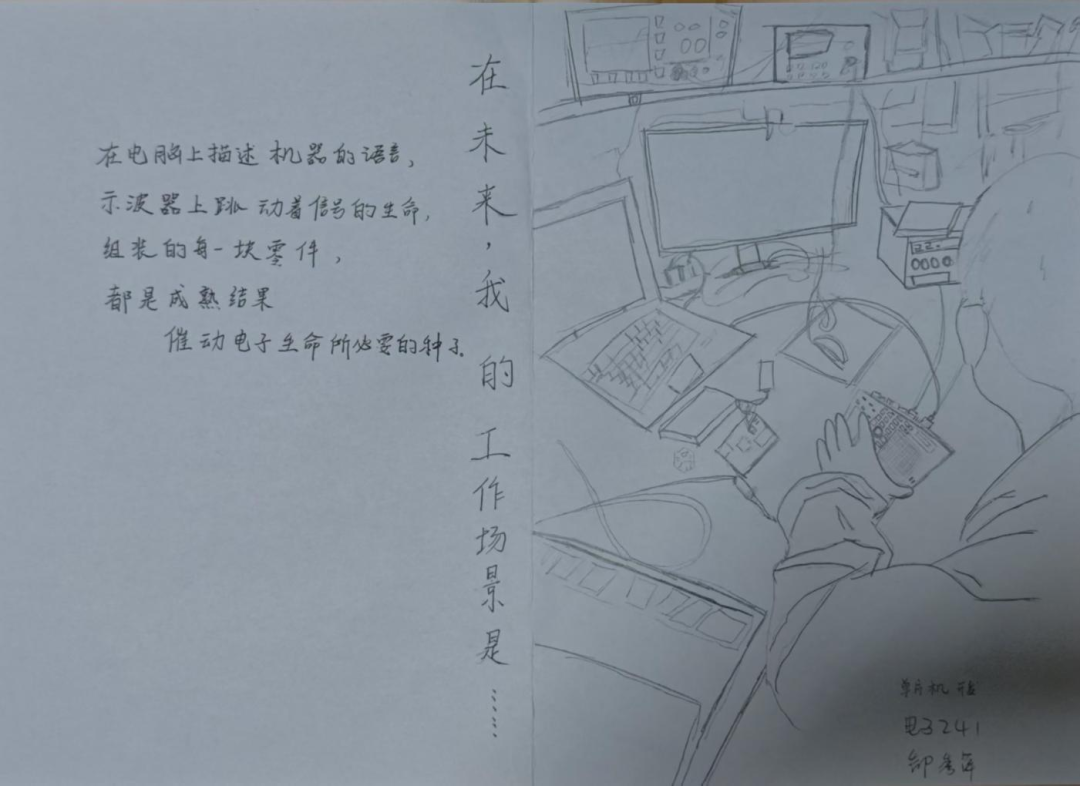 在未来，我的工作场景是……
在电脑上描述机器的语言，
示波器上跳动着信号的生命，
组装的每一块零件，
都是成熟结果
催动电子生命所必需的种子。
单片机
电子241